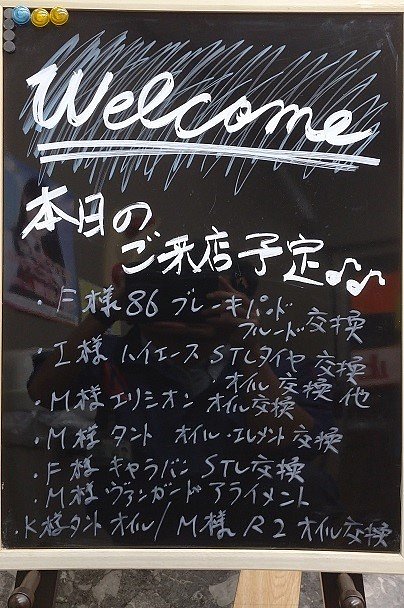 Welcome
本日の
ご来店予定♪♪
・F様 86 ブレーキパッド
フルード 交換
・I様 ハイエース STLタイヤ 交換
・オイル 交換 他
・M様 エリシオン オイル交換
・M様 タント オイル・エレメント 交換
・F様 キャラバン STL交換
・M様 ヴァンガード アライメント
K様タント オイル/M様 R2 オイル交換